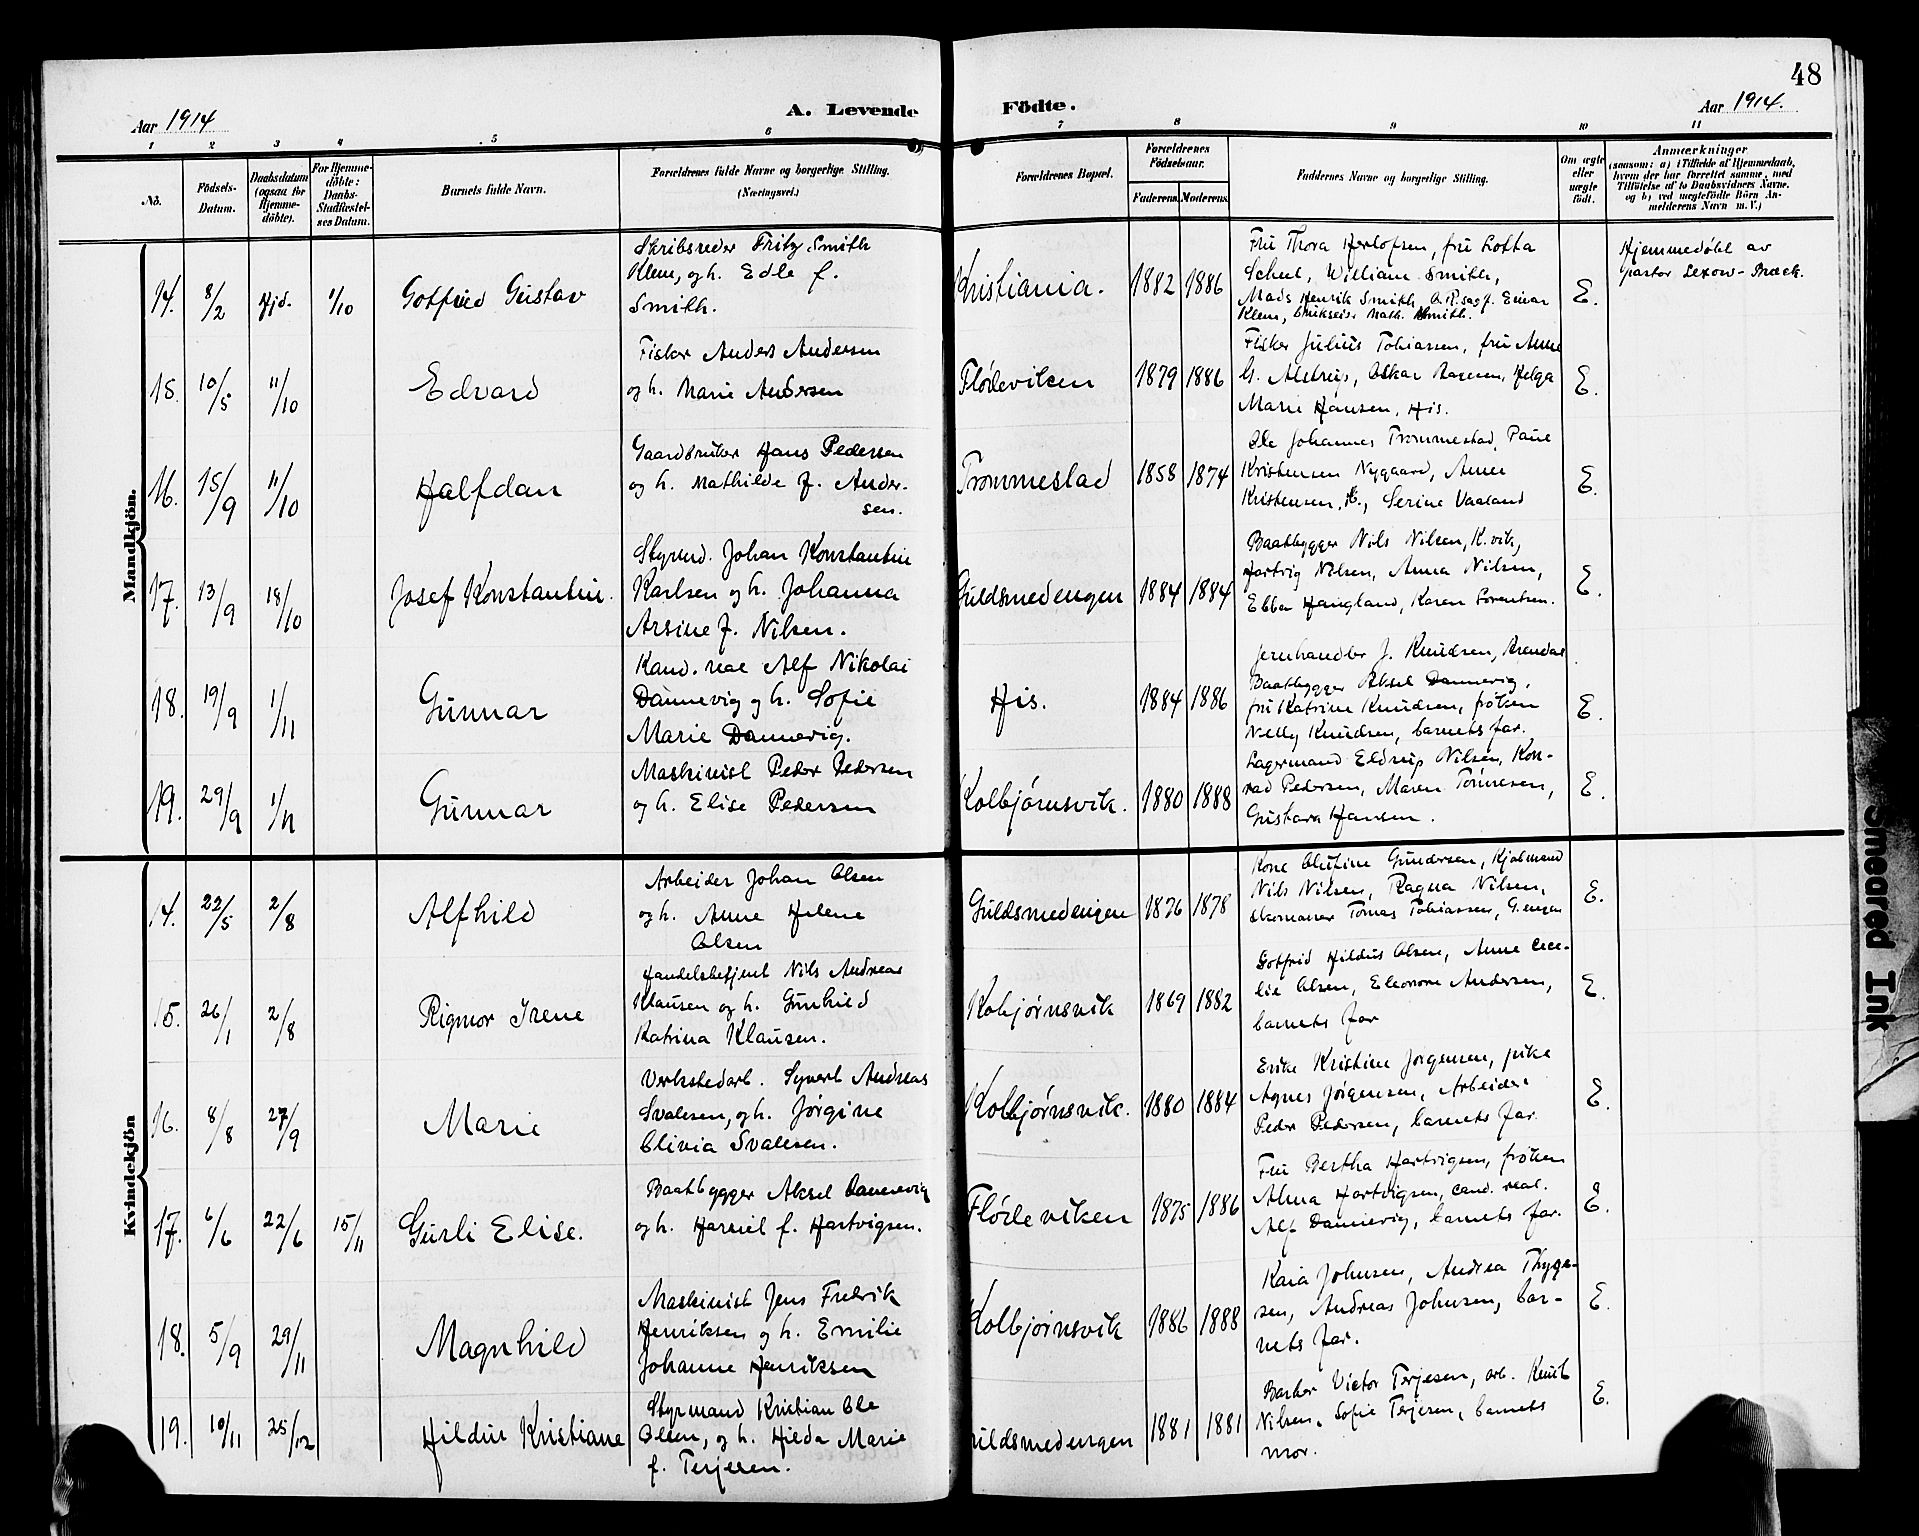 48
Aar 1914
A. Levende
Födte.
Aar 1914.
1 2 3 4 5 6 7 8 9 10 11
No.
Födsels-
Datum.
Daabsdatum
(ogsaa for
Hjemme-
döbte).
For Hjemme-
döbte:
Daabs-
Stadfæstel-
ses Datum.
Barnets fulde Navn.
Forældrenes fulde Navne og borgerlige Stilling.
(Næringsvei.)
Forældrenes Bopæl.
Forældrenes
Födselsaar.
Faderens. Moderens.
Faddernes Navne og borgerlige Stilling.
Om ægte
eller
uægte
födt.
Anmærkninger
(saasom: a) i Tilfælde af Hjemmedaab,
hvem der har forrettet samme, med
Tilföielse af to Daabsvidners Navne,
og b) ved uægtefödte Börn An-
melderens Navn m. V.)
Mandkjön.
14. 8/2 Hjd. 1/10 Gotfried Gustav
Skibsreder Fritz Smith
Klem, og h. Edle f.
Smith.
Kristiania. 1882 1886
Fru Thora Herlofsen, fru Lotta
Scheel, William Smith,
Mads Henrik Smith, O.R.sagf. Einar
Klem, Smith.
E.
Hjemmedøbt av
pastor Lexow-Bræck.
15. 10/5 11/10 Edvard
Fisker Anders Andersen
og h. Marie Andersen
Flødeviken 1879 1886
Fisker Julius Tobiassen, fru Anne
G. Alstrup, Oskar Helga
Marie Hansen, His.
E.
16. 15/9 11/10 Halfdan
Gaardbruker Hans Pedersen
og h. Mathilde f. Ander-
sen.
Trommestad 1858 1874
Ole Johannes Trommestad,
Kristensen Nygaard, Anne
Kristensen, Serine Vaaland
E.
17. 13/9 18/10 Josef Konstantin.
Styrmd. Johan Konstantin
Karlsen og h. Johanna
Arsine f. Nilsen.
Guldsmedengen 1884 1884
Baatbygger Nils Nilsen, K.vik,
Hartvig Nilsen, Anna Nilsen,
Ebba Haugland, Karen Lorentsen.
E.
18. 19/9 1/11 Gunnar
Kand. real Alf Nikolai
Dannevig og h. Sofie
Marie Dannevig.
His. 1884 1886
Jernhandler J. Knudsen, Arendal.
Baatbygger Aksel Dannevig,
fru Katrine Knudsen, frøken
Nelly Knudsen, barnets far.
E.
19. 29/9 1/11 Gunnar
Maskinist Peder Pedersen
og h. Elise Pedersen
Kolbjørnsvik. 1880 1888
Lagermand Eldrup Nilsen, Kon-
rad Pedersen, Maren Tønnesen,
Gustava Hansen.
E.
Kvindekjön
14. 22/5 2/8 Alfhild
Arbeider Johan Olsen
og h. Anne Helene
Olsen
Guldsmedengen 1876 1878
Kone Olufine Gundersen,
Nils Nilsen, Ragna Nilsen,
skomaker Tomas Tobiassen, G.engen
E.
15. 26/1 2/8 Rigmor Irene
Handelsbetjent Nils Andreas
Klausen og h. Gunhild
Katrina Klausen.
Kobjørnsvik 1869 1882
Gotfrid Hildus Olsen, Anne Cece-
lie Olsen, Eleonore Andersen,
barnets far
E.
16. 8/8 27/9 Marie
Verkstedarb. Syvert Andreas
Svalesen, og h. Jørgine
Olivia Svalesen.
Kolbjørnsvik. 1880 1884
Enke Kristine Jørgensen, pike
Agnes Jørgensen, Arbeider
Peder Pedersen, barnets far.
E.
17. 6/6 22/6 15/11 Gurli Elise.
Baatbygger Aksel Dannevig
og h. Harriet f. Hartvigsen.
Flødeviken 1875 1886
Fru Bertha Hartvigsen, frøken
Alma Hartvigsen, cand. real.
Alf Dannevig, barnets far.
E.
18. 5/9 29/11 Magnhild
Maskinist Jens Fredrik
Henriksen og h. Emilie
Johanne Henriksen
Kolbjørnsvik 1886 1888
Kaia Johnsen, Andrea Thyge-
sen, Andreas Johnsen, bar-
nets far.
E.
19. 10/11 25/12 Hildur Kristiane
Styrmand Kristian Ole
Olsen, og h. Hilda Marie
f. Terjesen.
uldsmedengen 1881 1881
Barber Victor Terjesen, arb. Knut
Nilsen, Sofie Terjesen, barnets
mor.
E.
Smeared Ink